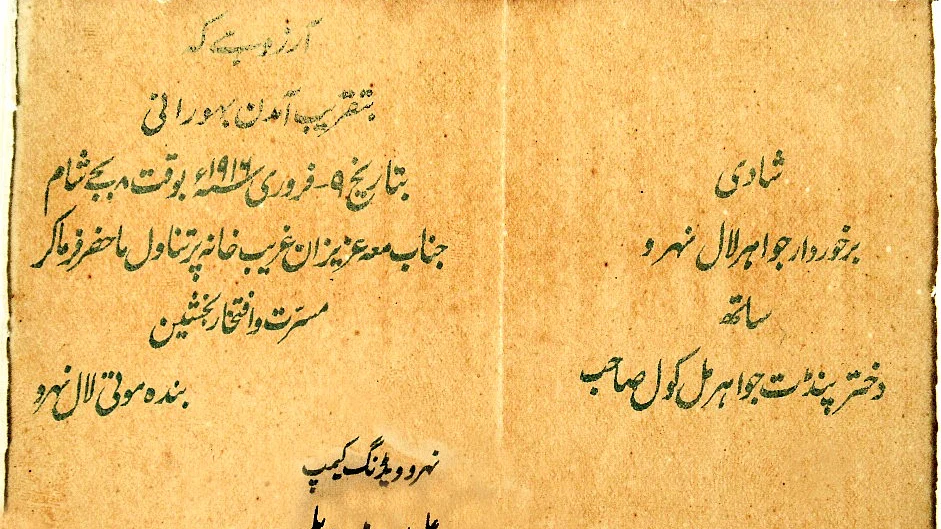 شادی
برخوردار جواہر لال نہرو
ساتھ
دختر پنڈت جواہر مل کول صاحب
آرزو ہے کہ
بتقریب آمدن بہورانی
بتاریخ ۹-فروری ۱۹۱۶ء بوقت ۸ بجے شام
جناب معہ عزیزان غریب خانہ پر تناول ماحضر فرماکر
مسرّت و افتخار بخشین
بندہ موتی لال نہرو
نہرو ویڈنگ کیمپ